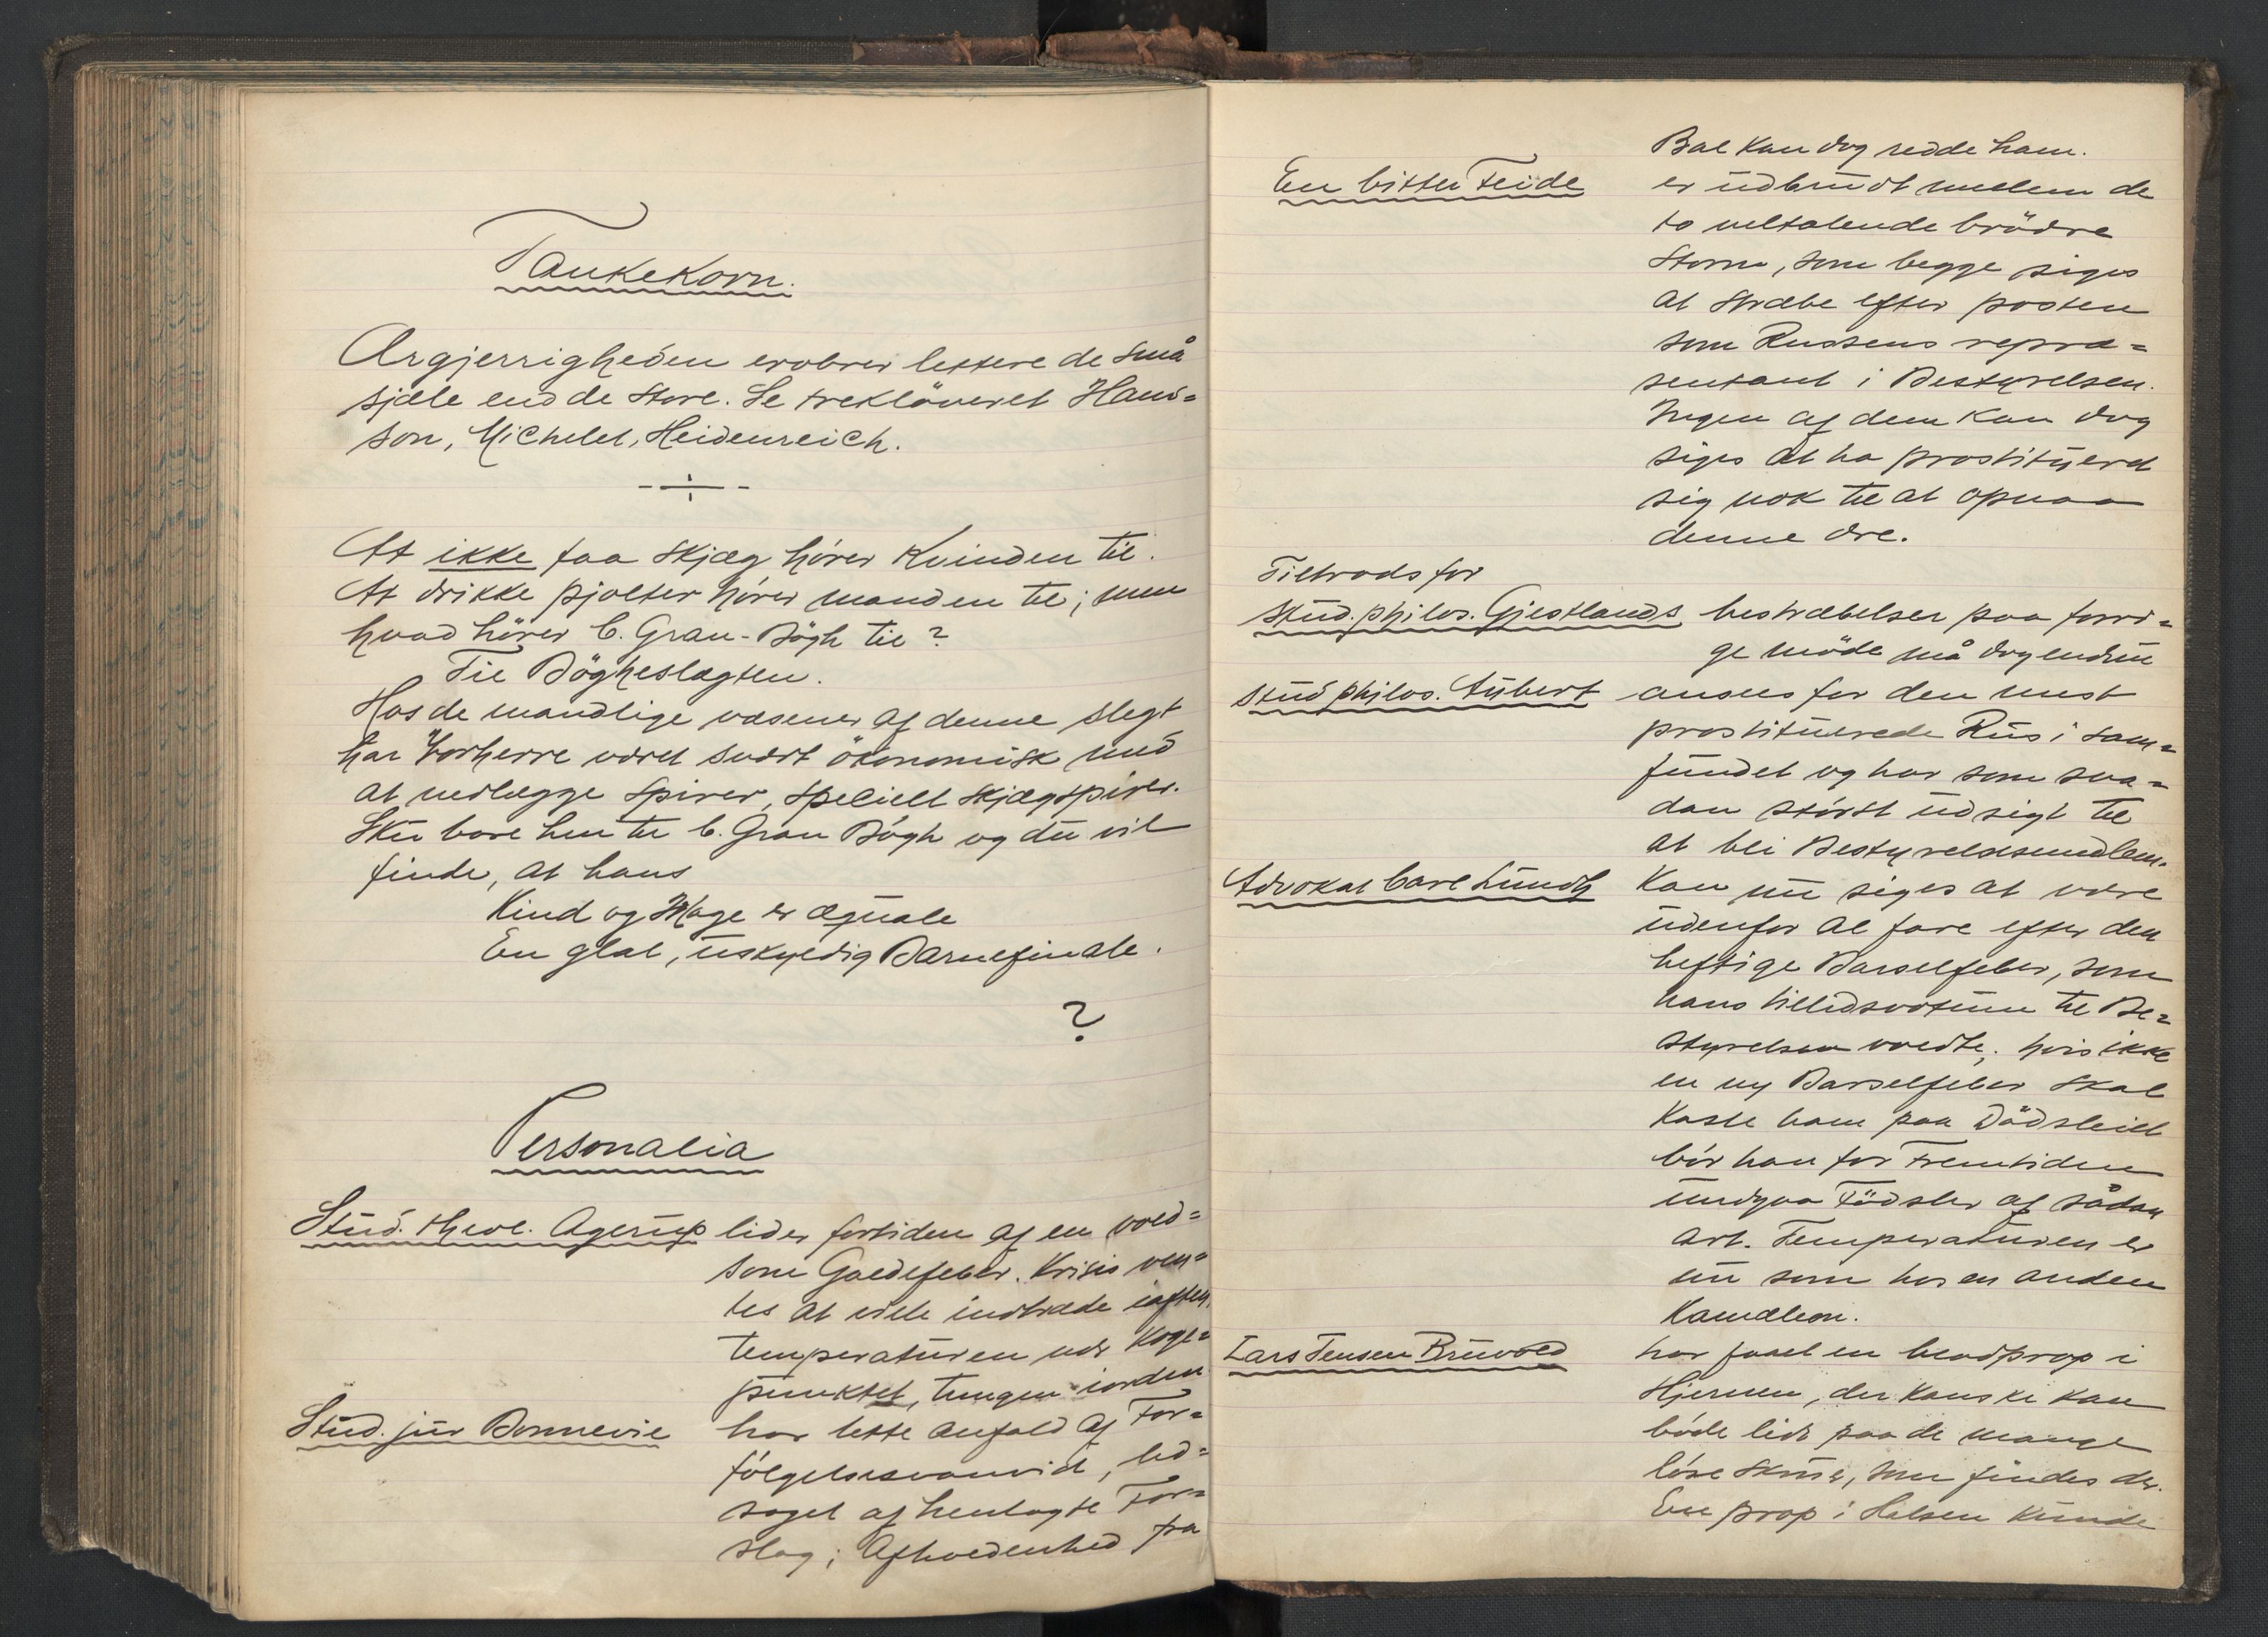 Tankekorn.
Ærgjerrigheden erobrer lettere de små
sjæle end de store. Se trekløveret Hans=
son, Michelet, Heidenreich.
At ikke faa Skjæg hører Kvinden til.
At drikke pjolter hører manden til; men
hvad hører C. Gran-Bögh til?
Til Bögheslægten.
Hos de mandlige væsener af denne slegt
har Vorherre været svært ökonomisk med
at nedlægge spirer, specielt skjægspirer.
Sku bare hen til C. Gran Bögh og du vil
finde, at hans
Kind og Hage er æquale
En glat, uskyldig Barnefinale.
?
Personalia
Stud. theol. Agerup lider fortiden af en vold=
som Galdefeber. Krisis ven=
tes at ville indtræde iaften,
temperaturen nær Koge=
punktet, tungen iorden
Stud. jur Bonnevie har lette Anfald af For=
følgelsesvanvid, led=
saget af henlagte For=
slag; Afholdenhed fra
Bal kan dog redde ham.
En bitter Feide er udbrudt mellem de
to veltalende brödre
Storm, som begge siges
at stræbe efter posten
som Russens repræ=
sentant i Bestyrelsen.
Ingen af dem kan dog
siges at ha prostitueret
sig nok til at opnaa
denne ære.
Tiltrods for
Stud. philos. Gjestlands bestræbelser paa forri=
ge möde må dog endnu
stud philos. Aubert ansees for den mest
prostituerede Rus i Sam=
fundet og har som saa=
dan störst udsigt til
at bli Bestyrelsesmedlem.
Advokat Carl Lundh Kan nu siges at være
udenfor al fare efter den
heftige Barselfeber, som
hans tillidsvotum til Be=
styrelsen voldte; hvis ikke
en ny Barselfeber skal
kaste ham paa Dödsleiet
bör han for Fremtiden
undgaa Födsler af sådan
art. Temperaturen er
nu som hos en anden
Kamæleon.
Lars Jensen Bruvold har faaet en blodprop i
Hjernen, der kanske kan
böde lidt paa de mange
löse skruer, som findes der.
En prop i Halsen kunde